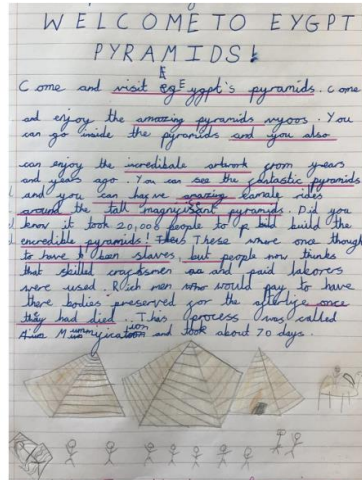 WELCOME TO EYGPT
PYRAMIDS!
Come and visit Eygpt's pyramids. Come
and enjoy the amazing pyramids vyoos. You
can go inside the pyramids and you also
can enjoy the incredibale artwork from years
and years ago. You can see the fantastic pyramids
and you can hayve amazing camale rides
around the tall magnyisant pyramids. Did you
know it took 20,000 people to build the
encredible pyramids! These where once though
to have been slaves, but people now thinks
that skilled craghsmen and paid laborers
were used. Rich men who would pay to have
there bodies preserved for the afterlife once
they had died. This process was called
Mummification and took about 70 days.